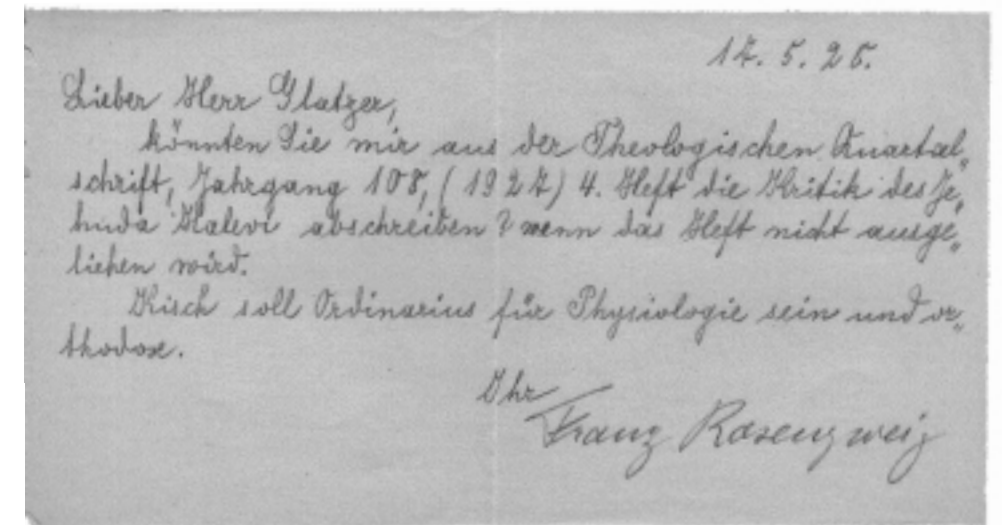 17. 5. 28.
Lieber Herr Glatzer,
könnten Sie mir aus der Theologischen Quartal„
schrift, Jahrgang 108, (1927) 4. Heft die Kritik des Je„
huda Halevi abschreiben? wenn das Heft nicht ausge„
liehen wird.
Kisch soll Ordinarius für Physiologie sein und or„
thodox.
Ihr
Franz Rosenzweig